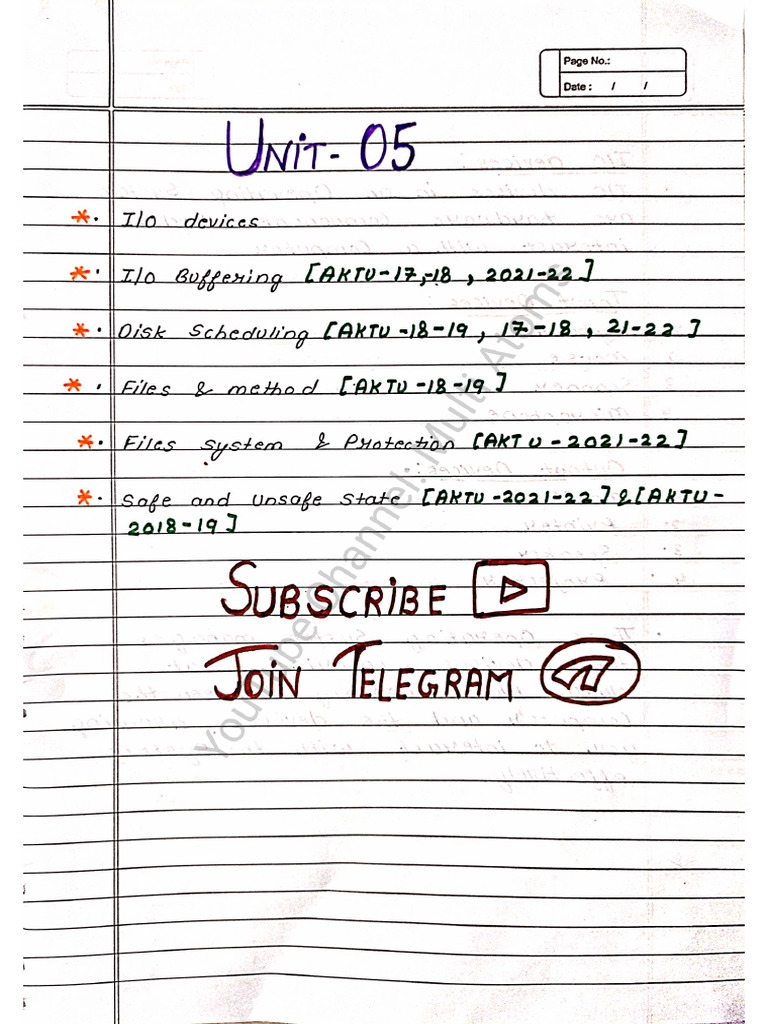 Page No.:
Date : / /
UNIT- 05
*. I/O devices
*. I/O Buffering [AKTU-17,-18 , 2021-22]
*. Disk Scheduling [AKTU -18-19 , 17-18 , 21-22]
*. Files & method [AKTU -18-19]
*. Files system & Protection [AKTU - 2021-22]
*. Safe and Unsafe State [AKTU -2021-22] & [AKTU-
2018-19]
SUBSCRIBE
JOIN TELEGRAM
YouTube Channel: Multi Atoms